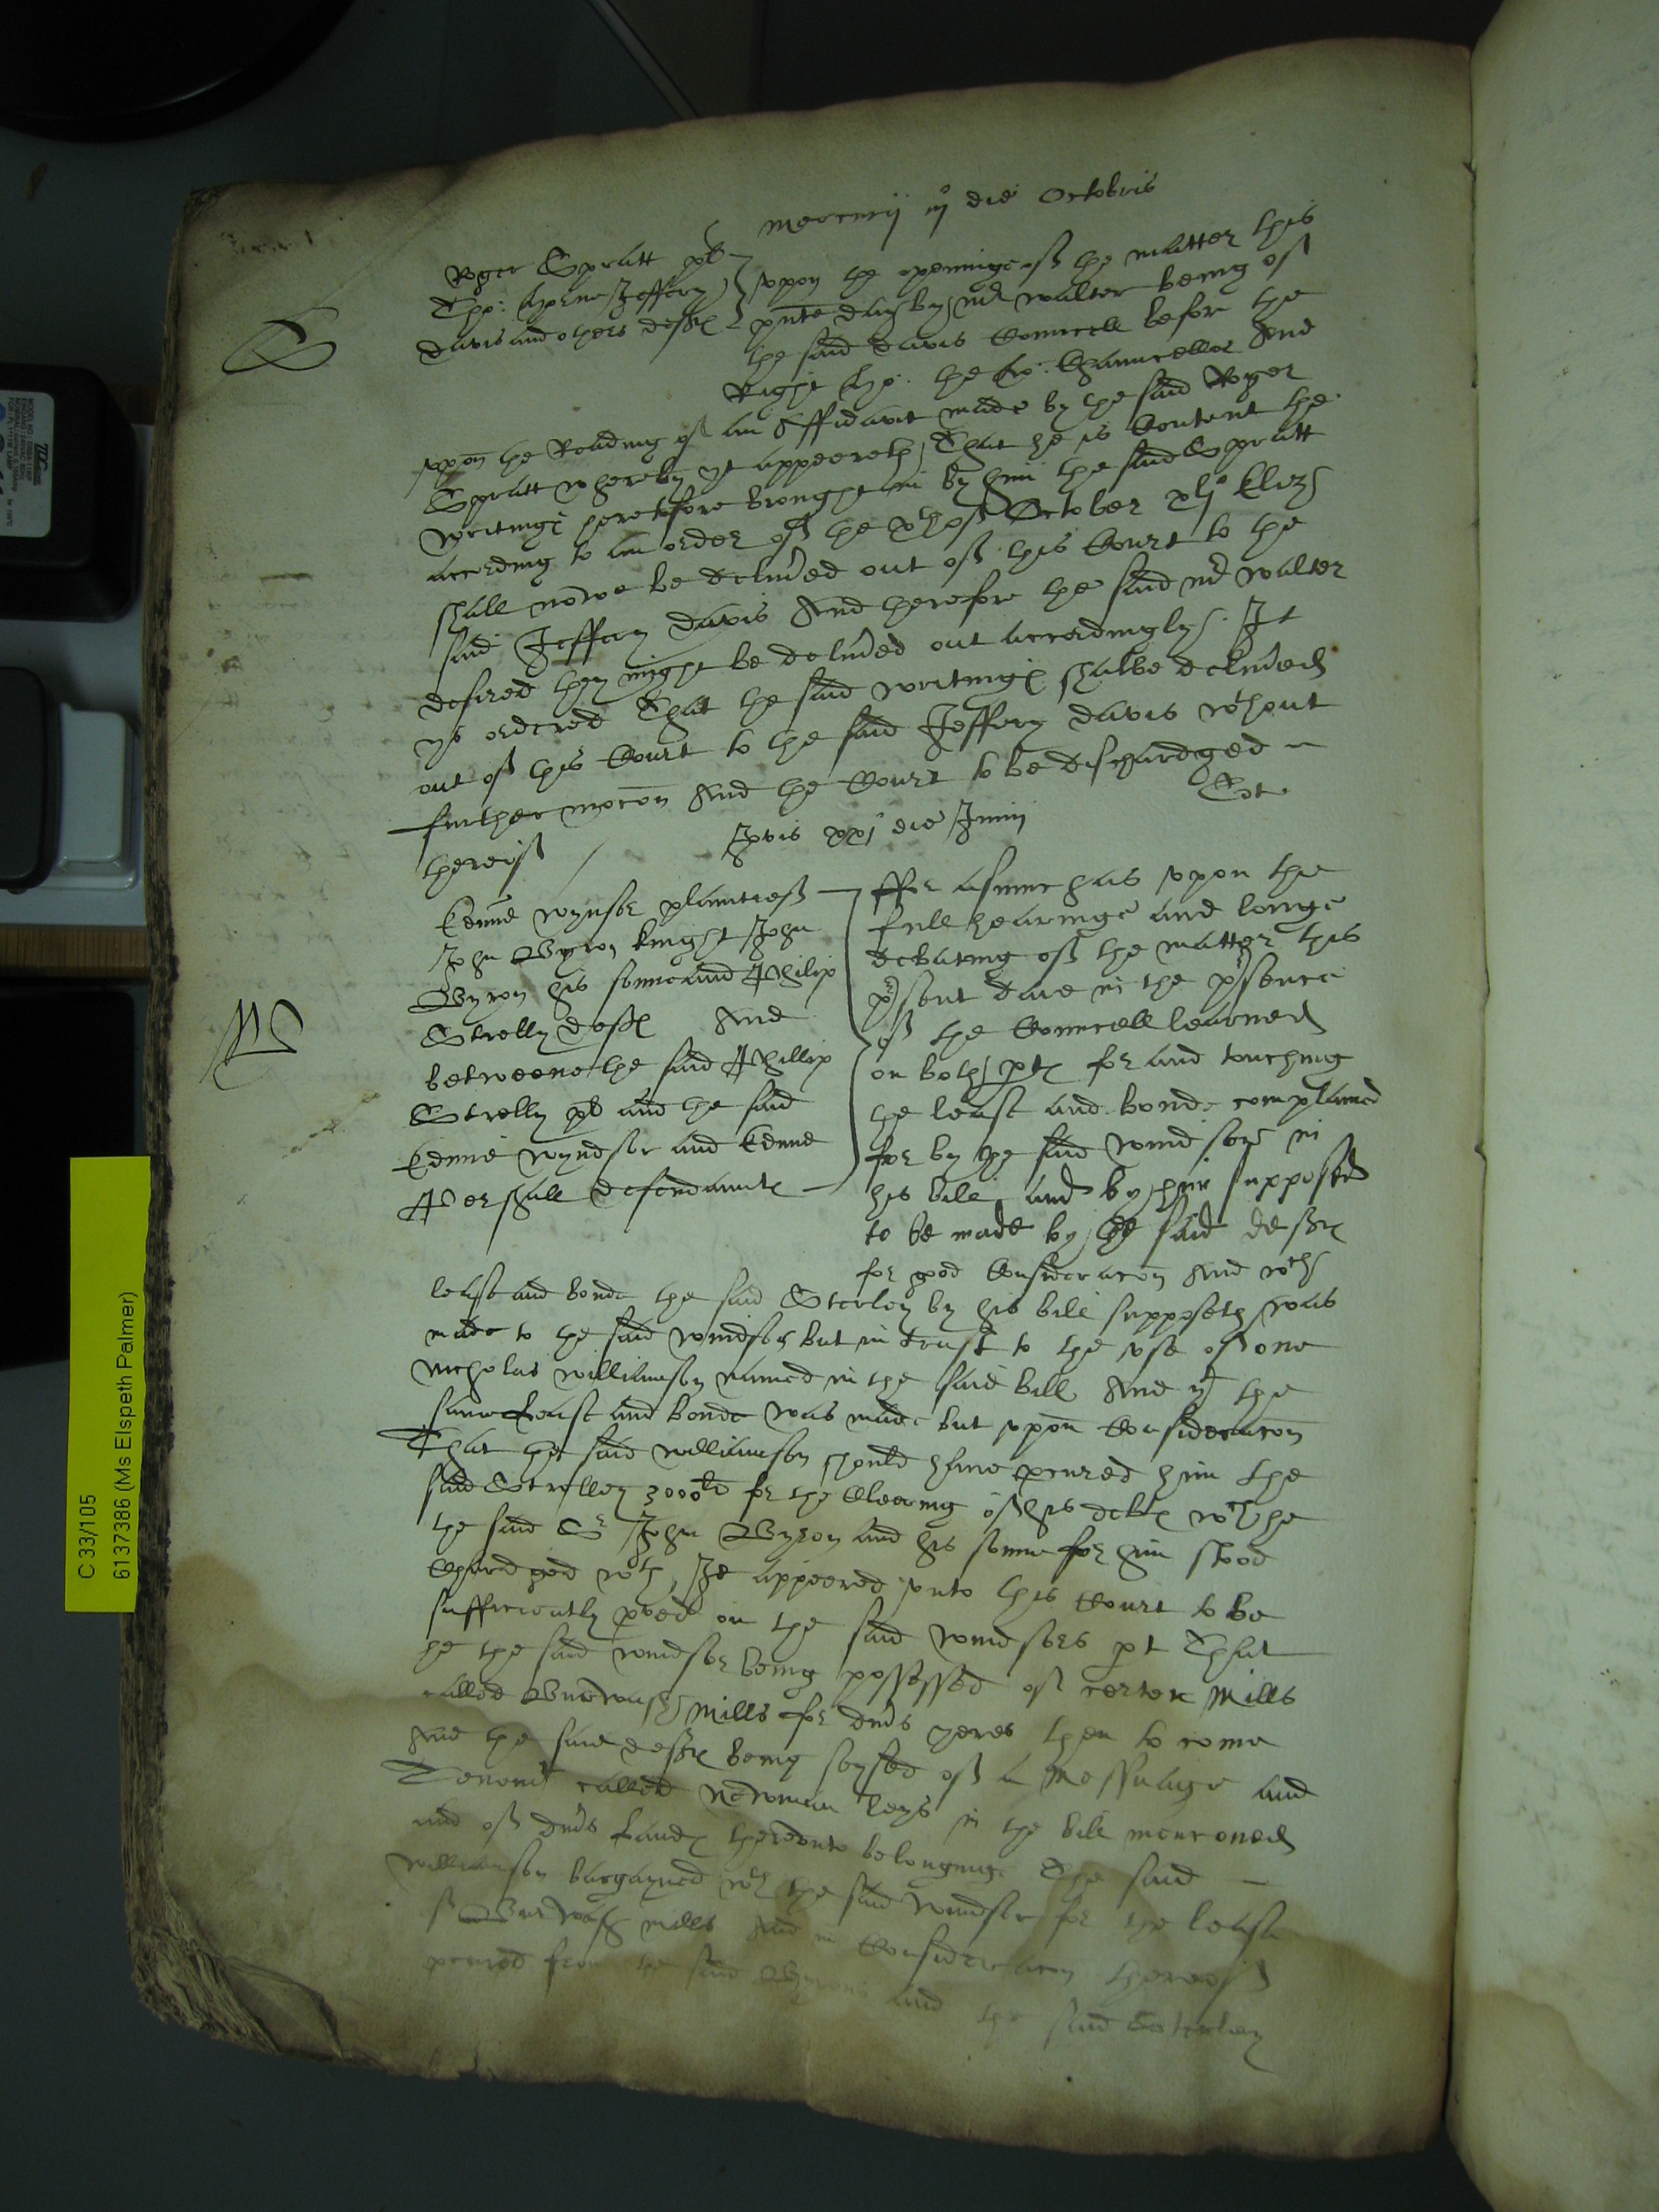 mercurij iijo die Octobris
Roger Spratt pl
Tho: Jeffery
davis and others deftes
upon the openinge of the matter this
pnte day by mr walter being of
the said davis Councell before the
Right ho: the lo: Chauncellor And
upon the Reading of an Affidavit made by the said Roger
Spratt whereby yt appeereth, That he is Content the
writinges heretofore brought in by him the said Spratt
according to an order of the of October xljo Elizh
shall nowe be delivred out of this Court to the
said Jeffery davis And therefore the said mr walter
desired they might be delivred out accordingly. It
ys ordered That the said writinges shalbe delivred
out of this Court to the said Jeffery davis wthout
further mocon And the Court to be dischardged
thereof /
Jovis xxjo die Junij
Edmund wyndsor plaintief
John Byron knight John
Byron his sonne and Philip
Strelly deftes And
betweene the said Phillip
Strelly pl and the said
Edmund wyndsor and Edmund
Pershall defendauntes
ffor asmuchas upon the
full hearinge and longe
debating of the matter this
present daie in the presence
of the Councell learned
on both ptes for and touching
the lease and bonde complained
for by the said windsore in
his bill and by him supposed
to be made by the said deftes
for good Consideracon And wch
lease and bonde the said Sterley by his bill supposeth was
made to the said windsor but in trust to the use of one
nicholas williamson named in the said bill And yt the
same lease and bonde was made but upon Consideracon
That the said williamson should have pcured him the
said Strelley 3000li for the Clearing of his debtes wch he
the said Sr John Byron and his sonne for him stood
Chardged wth, It appeered unto this Court to be
sufficiently pved on the said windsors pt That
he the said windsor being possessed of certen Mills
called Mills for divs yeres then to come
And the said deftes being seysed of a Messuage and
Tenemt called newman leys in the bill mencioned
and of divs landes thereunto belonging The said
williamson bargayned wth the said windsor for the lease
of mills And in Consideracon thereof
pcured from the said Byrons and the said Sterley
C 33/105
6137386 (Ms Elspeth Palmer)